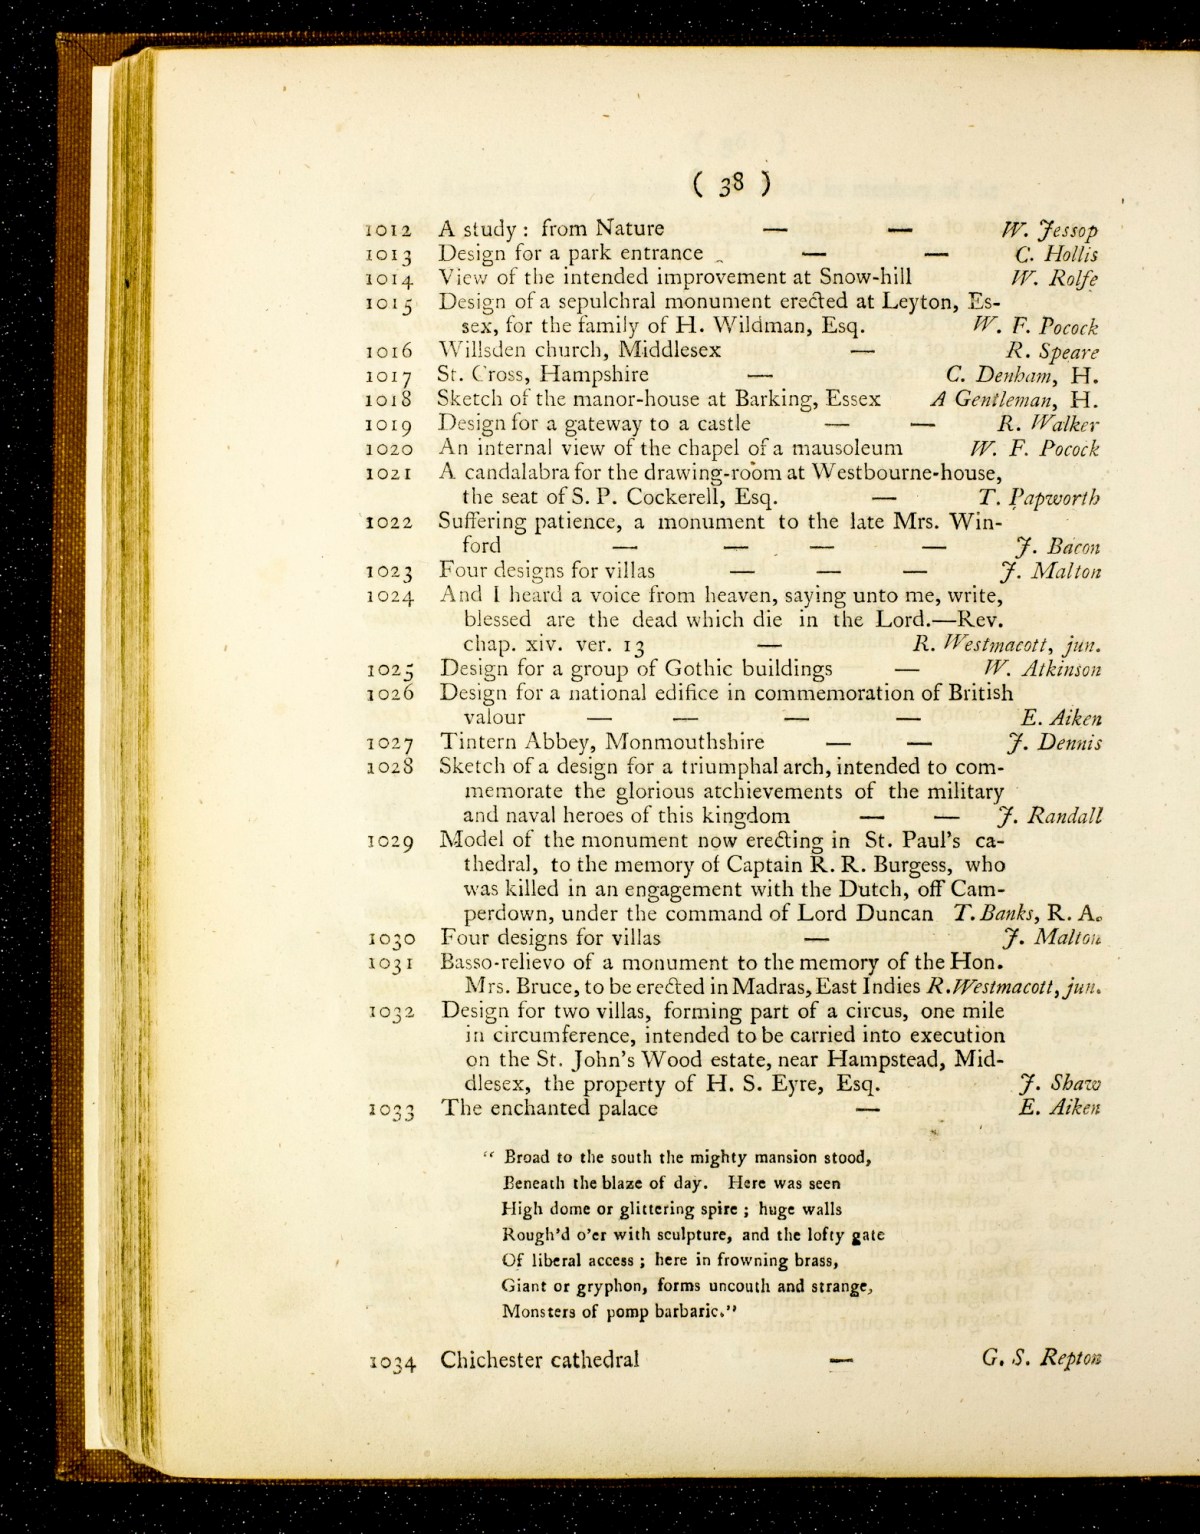 ( 38 )
1012 A study : from Nature — — W. Jessop
1013 Design for a park entrance — — C. Hollis
1014 View of the intended improvement at Snow-hill W. Rolfe
1015 Design of a sepulchral monument erected at Leyton, Es-
sex, for the family of H. Wildman, Esq. W. F. Pocock
1016 Willsden church, Middlesex — R. Speare
1017 St. Cross, Hampshire — C. Denham, H.
1018 Sketch of the manor-house at Barking, Essex A Gentleman, H.
1019 Design for a gateway to a castle — — R. Walker
1020 An internal view of the chapel of a mausoleum W. F. Pocock
1021 A candalabra for the drawing-room at Westbourne-house,
the seat of S. P. Cockerell, Esq. — T. Papworth
1022 Suffering patience, a monument to the late Mrs. Win-
ford — — — — J. Bacon
1023 Four designs for villas — — — J. Malton
1024 And I heard a voice from heaven, saying unto me, write,
blessed are the dead which die in the Lord.—Rev.
chap. xiv. ver. 13 — R. Westmacott, jun.
1025 Design for a group of Gothic buildings — W. Atkinson
1026 Design for a national edifice in commemoration of British
valour — — — — E. Aiken
1027 Tintern Abbey, Monmouthshire — — J. Dennis
1028 Sketch of a design for a triumphal arch, intended to com-
memorate the glorious atchievements of the military
and naval heroes of this kingdom — — J. Randall
1029 Model of the monument now erecting in St. Paul's ca-
thedral, to the memory of Captain R. R. Burgess, who
was killed in an engagement with the Dutch, off Cam-
perdown, under the command of Lord Duncan T. Banks, R. A.
1030 Four designs for villas — J. Malton
1031 Basso-relievo of a monument to the memory of the Hon.
Mrs. Bruce, to be erected in Madras, East Indies R. Westmacott, jun.
1032 Design for two villas, forming part of a circus, one mile
in circumference, intended to be carried into execution
on the St. John's Wood estate, near Hampstead, Mid-
dlesex, the property of H. S. Eyre, Esq. J. Shaw
1033 The enchanted palace — E. Aiken
" Broad to the south the mighty mansion stood,
Beneath the blaze of day. Here was seen
High dome or glittering spire ; huge walls
Rough'd o'er with sculpture, and the lofty gate
Of liberal access ; here in frowning brass,
Giant or gryphon, forms uncouth and strange,
Monsters of pomp barbaric."
1034 Chichester cathedral — G. S. Repton